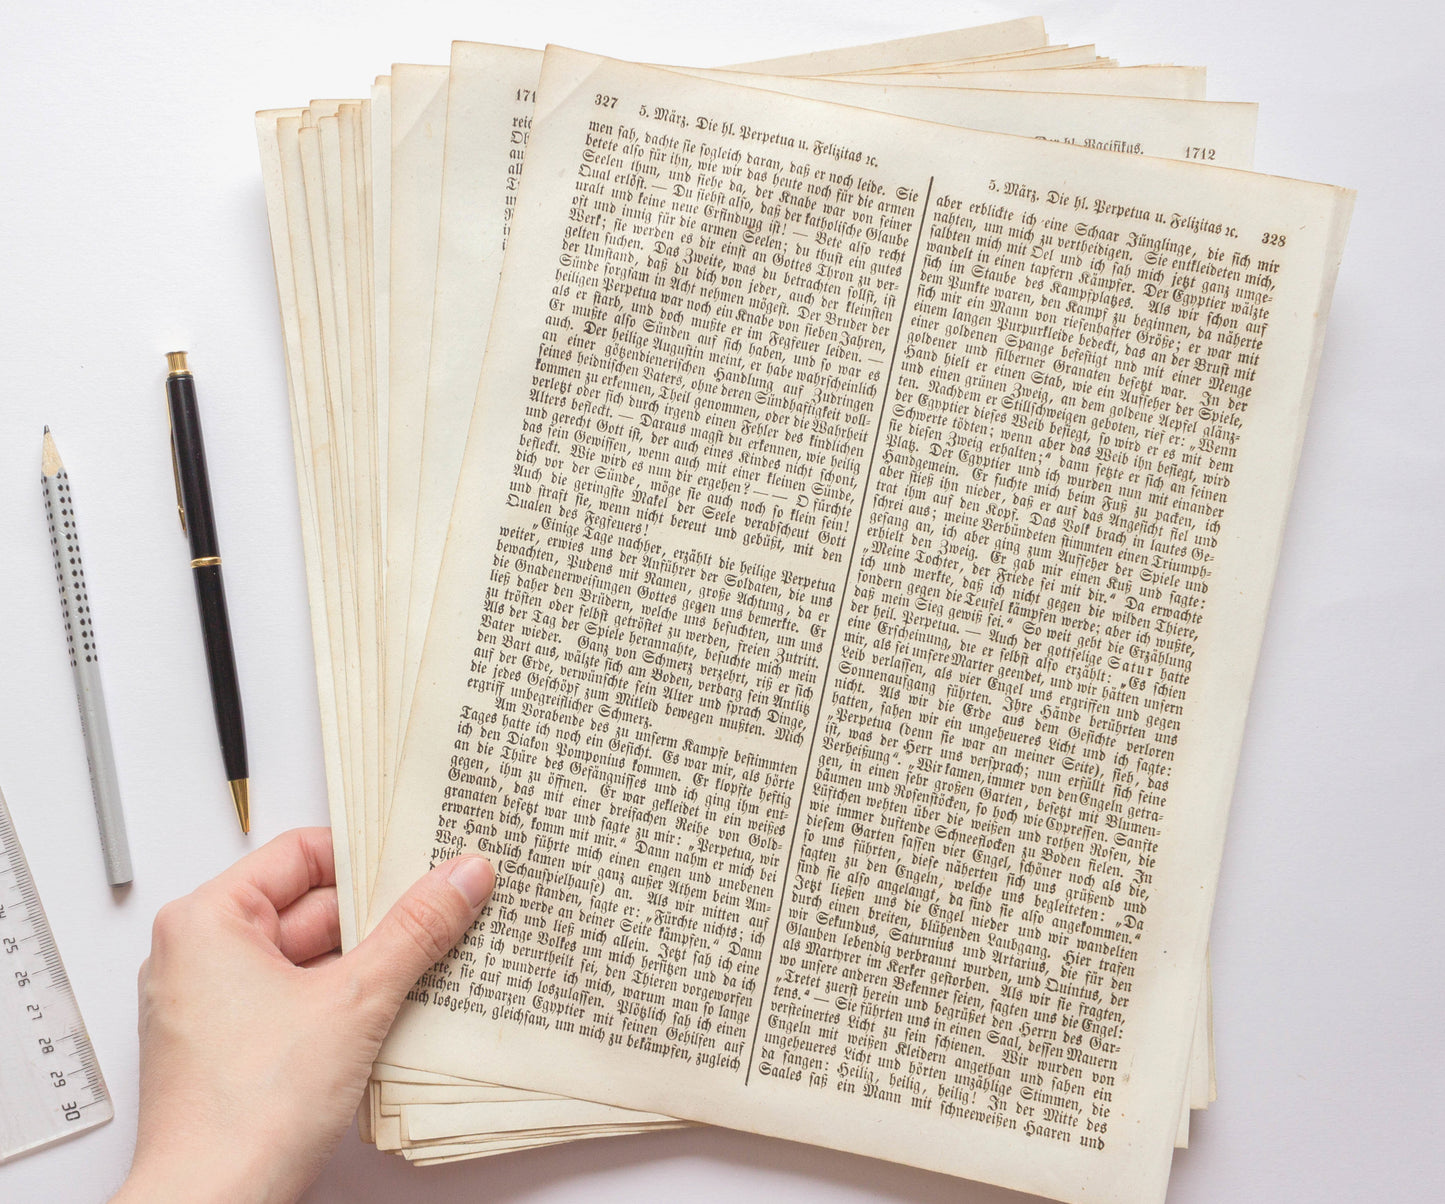 327
5. März. Die hl. Perpetua u. Felizitas ꝛc.
men ſah, dachte ſie ſogleich daran, daß er noch leide. Sie
betete alſo für ihn, wie wir das heute noch für die armen
Seelen thun, und ſiehe da, der Knabe war von ſeiner
Qual erlöſt. — Du ſiehſt alſo, daß der katholiſche Glaube
uralt und keine neue Erfindung iſt! — Bete alſo recht
oft und innig für die armen Seelen; du thuſt ein gutes
Werk; ſie werden es dir einſt an Gottes Thron zu ver-
gelten ſuchen. Das Zweite, was du betrachten ſollſt, iſt
der Umſtand, daß du dich von jeder, auch der kleinſten
Sünde ſorgſam in Acht nehmen mögeſt. Der Bruder der
heiligen Perpetua war noch ein Knabe von ſieben Jahren,
als er ſtarb, und doch mußte er im Fegfeuer leiden. —
Er mußte alſo Sünden auf ſich haben, und ſo war es
auch. Der heilige Auguſtin meint, er habe wahrſcheinlich
an einer götzendieneriſchen Handlung auf Zudringen
ſeines heidniſchen Vaters, ohne deren Sündhaftigkeit voll-
kommen zu erkennen, Theil genommen, oder die Wahrheit
verletzt oder ſich durch irgend einen Fehler des kindlichen
Alters befleckt. — Daraus magſt du erkennen, wie heilig
und gerecht Gott iſt, der auch eines Kindes nicht ſchont,
das ſein Gewiſſen, wenn auch mit einer kleinen Sünde,
befleckt. Wie wird es nun dir ergehen? — — O fürchte
dich vor der Sünde, möge ſie auch noch ſo klein ſein!
Auch die geringſte Makel der Seele verabſcheut Gott
und ſtraft ſie, wenn nicht bereut und gebüßt, mit den
Qualen des Fegfeuers!
„Einige Tage nachher, erzählt die heilige Perpetua
weiter, erwies uns der Anführer der Soldaten, die uns
bewachten, Pudens mit Namen, große Achtung, da er
die Gnadenerweiſungen Gottes gegen uns bemerkte. Er
ließ daher den Brüdern, welche uns beſuchten, um uns
zu tröſten oder ſelbſt getröſtet zu werden, freien Zutritt.
Als der Tag der Spiele herannahte, beſuchte mich mein
Vater wieder. Ganz von Schmerz verzehrt, riß er ſich
den Bart aus, wälzte ſich am Boden, verbarg ſein Antlitz
auf der Erde, verwünſchte ſein Alter und ſprach Dinge,
die jedes Geſchöpf zum Mitleid bewegen mußten. Mich
ergriff unbegreiflicher Schmerz.
Am Vorabende des zu unſerm Kampfe beſtimmten
Tages hatte ich noch ein Geſicht. Es war mir, als hörte
ich den Diakon Pomponius kommen. Er klopfte heftig
an die Thüre des Gefängniſſes und ich ging ihm ent-
gegen, ihm zu öffnen. Er war gekleidet in ein weißes
Gewand, das mit einer dreifachen Reihe von Gold-
granaten beſetzt war und ſagte zu mir: „Perpetua, wir
erwarten dich, komm mit mir.“ Dann nahm er mich bei
der Hand und führte mich einen engen und unebenen
Weg. Endlich kamen wir ganz außer Athem beim Am-
(Schauſpielhauſe) an. Als wir mitten auf
ſtanden, ſagte er: „Fürchte nichts; ich
und werde an deiner Seite kämpfen.“ Dann
er ſich und ließ mich allein. Jetzt ſah ich eine
Menge Volkes um mich herſitzen und da ich
daß ich verurtheilt ſei, den Thieren vorgeworfen
ſo wunderte ich mich, warum man ſo lange
ſie auf mich loszulaſſen. Plötzlich ſah ich einen
ſchwarzen Egyptier mit ſeinen Gehilfen auf
losgehen, gleichſam, um mich zu bekämpfen, zugleich
5. März. Die hl. Perpetua u. Felizitas ꝛc.
328
aber erblickte ich eine Schaar Jünglinge, die ſich mir
nahten, um mich zu vertheidigen. Sie entkleideten mich,
ſalbten mich mit Oel und ich ſah mich jetzt ganz umge-
wandelt in einen tapfern Kämpfer. Der Egyptier wälzte
ſich im Staube des Kampfplatzes. Als wir ſchon auf
dem Punkte waren, den Kampf zu beginnen, da näherte
ſich mir ein Mann von rieſenhafter Größe; er war mit
einem langen Purpurkleide bedeckt, das an der Bruſt mit
einer goldenen Spange befeſtigt und mit einer Menge
goldener und ſilberner Granaten beſetzt war. In der
Hand hielt er einen Stab, wie ein Aufſeher der Spiele,
und einen grünen Zweig, an dem goldene Aepfel glänz-
ten. Nachdem er Stillſchweigen geboten, rief er: „Wenn
der Egyptier dieſes Weib beſiegt, ſo wird er es mit dem
Schwerte tödten; wenn aber das Weib ihn beſiegt, wird
ſie dieſen Zweig erhalten;“ dann ſetzte er ſich an ſeinen
Platz. Der Egyptier und ich wurden nun mit einander
Handgemein. Er ſuchte mich beim Fuß zu packen, ich
aber ſtieß ihn nieder, daß er auf das Angeſicht fiel und
trat ihm auf den Kopf. Das Volk brach in lautes Ge-
ſchrei aus; meine Verbündeten ſtimmten einen Triumph-
geſang an, ich aber ging zum Aufſeher der Spiele und
erhielt den Zweig. Er gab mir einen Kuß und ſagte:
„Meine Tochter, der Friede ſei mit dir.“ Da erwachte
ich und merkte, daß ich nicht gegen die wilden Thiere,
ſondern gegen die Teufel kämpfen werde; aber ich wußte,
daß mein Sieg gewiß ſei.“ So weit geht die Erzählung
der heil. Perpetua. — Auch der gottſelige Satur hatte
eine Erſcheinung, die er ſelbſt alſo erzählt: „Es ſchien
mir, als ſei unſere Marter geendet, und wir hätten unſern
Leib verlaſſen, als vier Engel uns ergriffen und gegen
Sonnenaufgang führten. Ihre Hände berührten uns
nicht. Als wir die Erde aus dem Geſichte verloren
hatten, ſahen wir ein ungeheueres Licht und ich ſagte:
„Perpetua (denn ſie war an meiner Seite), ſieh, das
iſt, was der Herr uns verſprach; nun erfüllt ſich ſeine
Verheißung“. „Wir kamen, immer von den Engeln getra-
gen, in einen ſehr großen Garten, beſetzt mit Blumen-
bäumen und Roſenſtöcken, ſo hoch wie Cypreſſen. Sanfte
Lüftchen wehten über die weißen und rothen Roſen, die
wie immer duftende Schneeflocken zu Boden fielen. In
dieſem Garten ſaſſen vier Engel, ſchöner noch als die,
ſo uns führten, dieſe näherten ſich uns grüßend und
ſagten zu den Engeln, welche uns begleiteten: „Da
ſind ſie alſo angelangt, da ſind ſie alſo angekommen.“
Jetzt ließen uns die Engel nieder und wir wandelten
durch einen breiten, blühenden Laubgang. Hier trafen
wir Sekundus, Saturnius und Artarius, die für den
Glauben lebendig verbrannt wurden, und Quintus, der
als Martyrer im Kerker geſtorben. Als wir ſie fragten,
wo unſere anderen Bekenner ſeien, ſagten uns die Engel:
„Tretet zuerſt herein und begrüßet den Herrn des Gar-
tens.“ — Sie führten uns in einen Saal, deſſen Mauern
verſteinertes Licht zu ſein ſchienen. Wir wurden von
Engeln mit weißen Kleidern angethan und ſahen ein
ungeheueres Licht und hörten unzählige Stimmen, die
da ſangen: Heilig, heilig, heilig! In der Mitte des
Saales ſaß ein Mann mit ſchneeweißen Haaren und
171
Der hl. Pacifikus.
1712
25
26
27
28
29
30